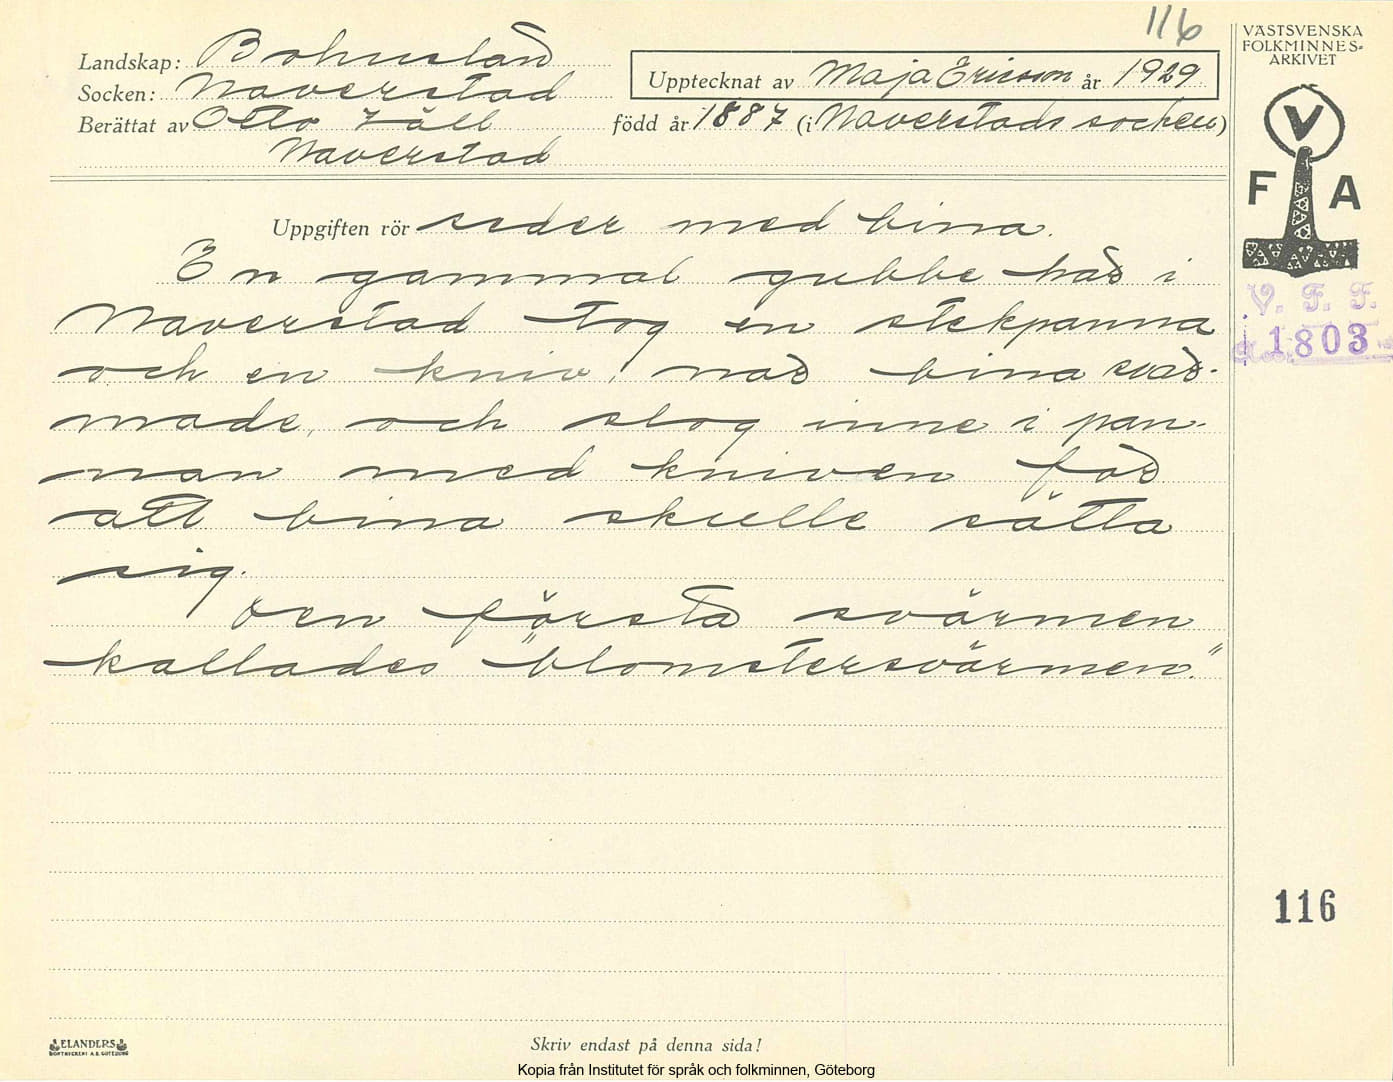 116
Landskap: Bohuslän
Socken: Naverstad
Upptecknat av Maja Ericson år 1929
Berättat av Otto Zäll född år 1887 (i Naverstads socken)
Naverstad
VÄSTSVENSKA
FOLKMINNES-
ARKIVET
V
F A
V. F. F.
1803
Uppgiften rör seder med bina.
En gammal gubbe här i
Naverstad tog en stekpanna
och en kniv, när bina svär-
made, och slog inne i pan-
nan med kniven för
att bina skulle sätta
sig.
Den första svärmen
kallades "blomstersvärmen."
116
ELANDERS
BOKTRYCKERI A.B. GÖTEBORG
Skriv endast på denna sida!
Kopia från Institutet för språk och folkminnen, Göteborg